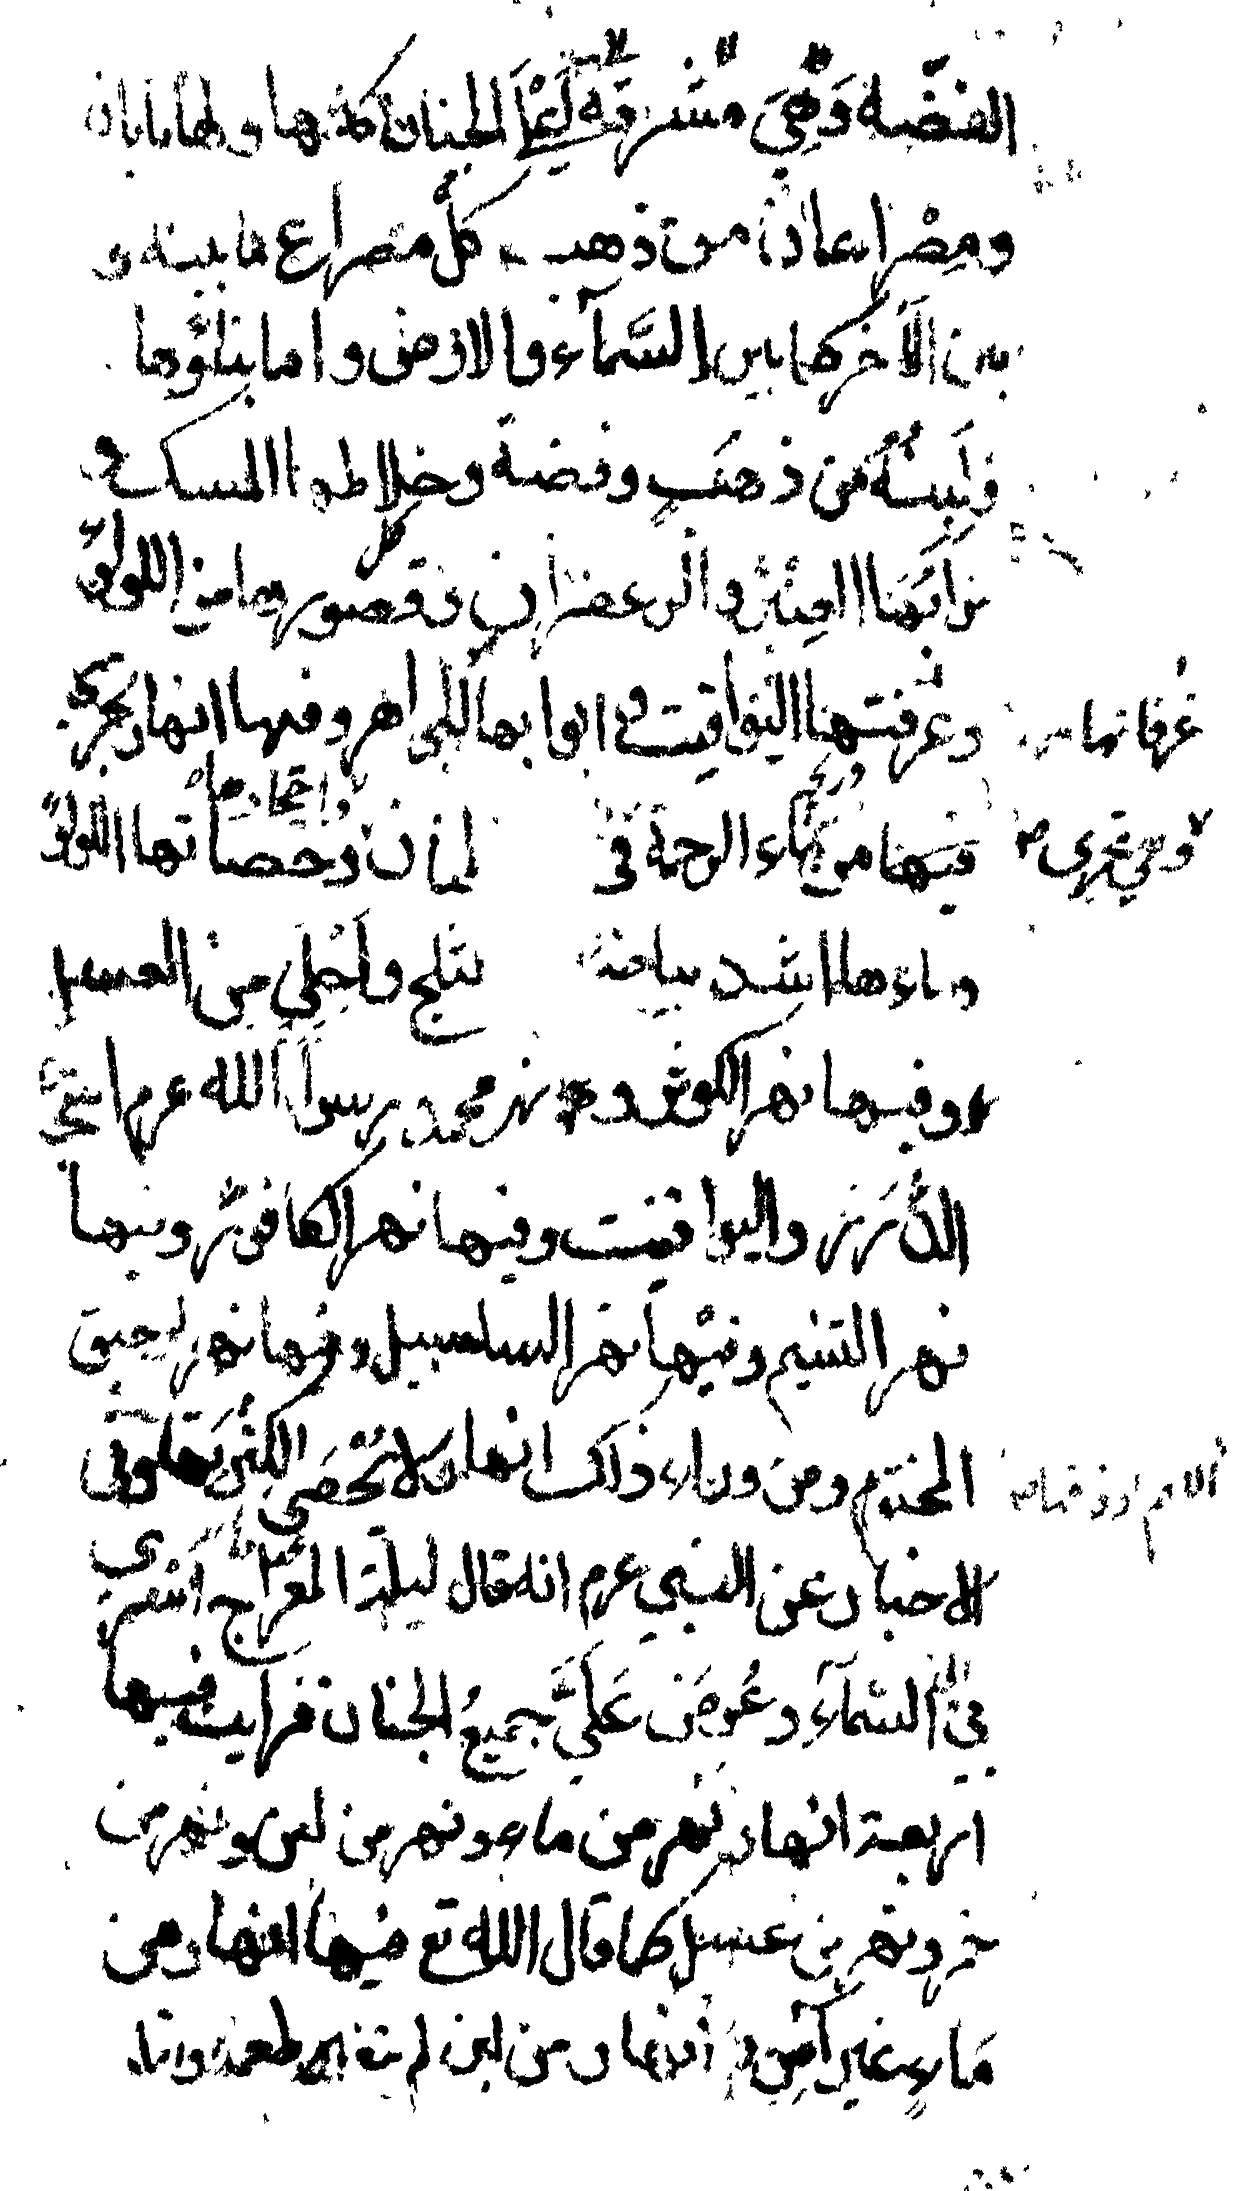 الفضة وهي مشرفة على الجنان كلها ولها بابان
ومصراعان من ذهب كل مصراع ما بينه و
بين الآخر كما بين السماء والارض واما بناؤها
فلبنة من ذهب وفضة وخلاطها المسك و
ترابها العنبر والزعفران وقصورها من اللولؤ
وغرفتها اليواقيت وابوابها الجواهر وفيها انهار تجري
غرفاتها من
فيها من ماء الرحمة في لجنان وحصاتها اللولؤ
وهي تجري
وماءها اشد بياضا ثلج واحلى من العسل
وفيها نهر الكوثر وهو نهر محمد رسول الله عم
الدرر واليواقيت وفيها نهر الكافور وفيها
نهر التسنيم وفيها نهر السلسبيل وفيها نهر الرحيق
المختوم ومن وراء ذلك انهار لا تحصى
الاخبار عن النبي عم انه قال ليلة المعراج اسري
في السماء وعرض علي جميع الجنان فرايت فيها
اربعة انهار نهر من ماء ونهر من لبن ونهر من
خمر ونهر من عسل كما قال الله تع فيها انهار من
ماء غير آسن و انهار من لبن لم يتغير طعمه وانهار